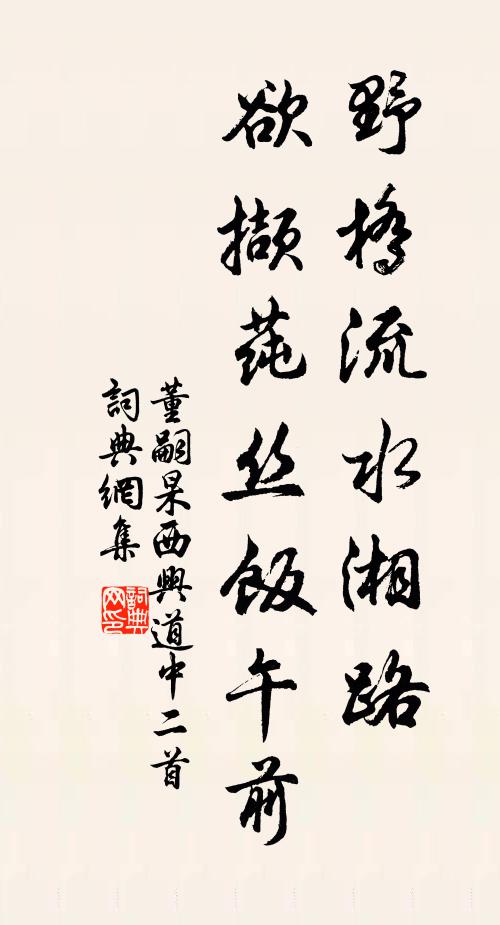 野橋流水湘路
欲擷莼丝飯午前
董嗣杲西興道中二首
詞典網集
詞典网印